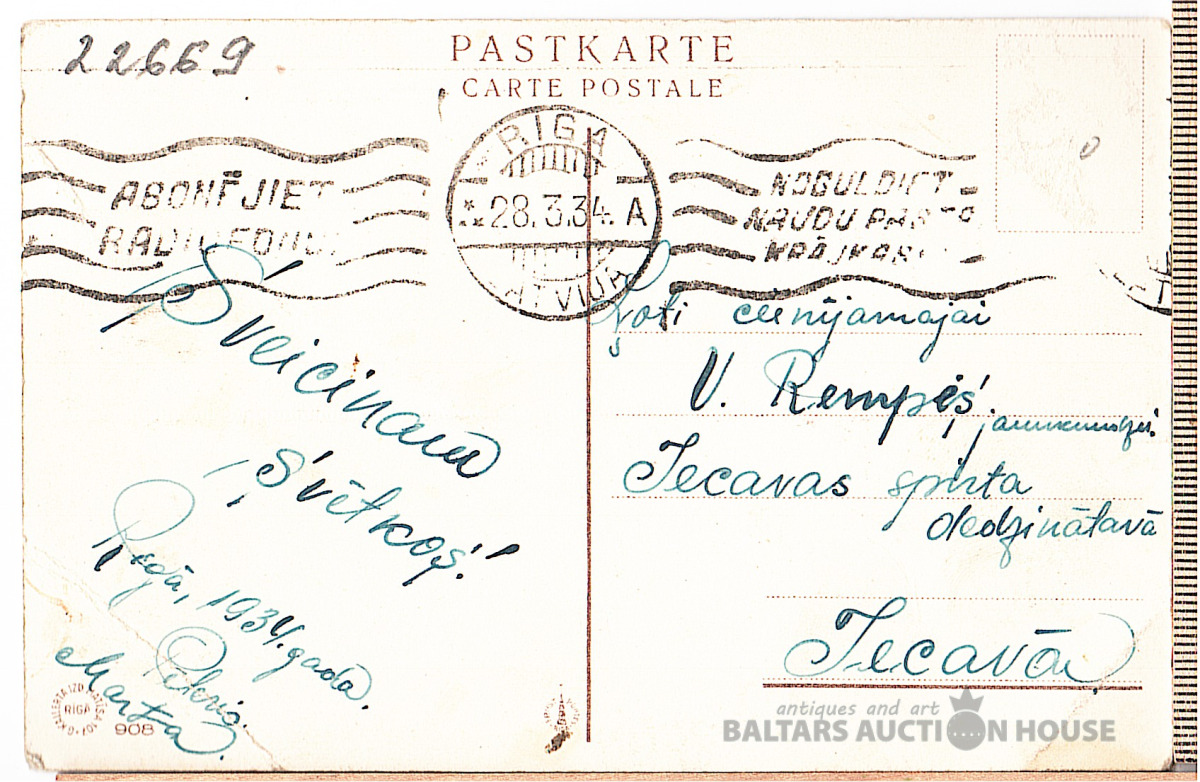 22669
PASTKARTE
CARTE POSTALE
ABONĒJIET
RADIOFONU
RIGA
28.3.34. A
LATVIJA
NOGULDIET
NAUDU PASTA
KRĀJKAS
Sveicinam
Svētkos!
Rīgā, 1934. gada.
Marta
Ļoti cienījamajai
V. Rempēs. jaunkundzei.
Iecavas spirta
dedzinātavā
Iecavā.
RIGA
908
antiques and art
BALTARS AUCTION HOUSE